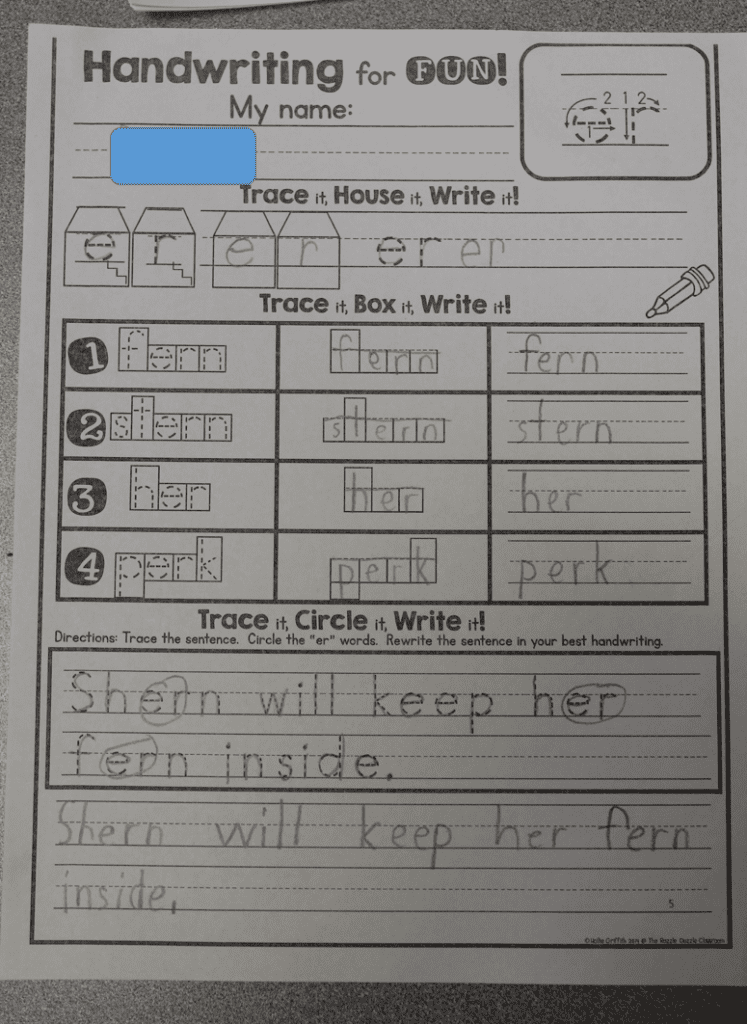 Handwriting for FUN!
My name:
2 1 2
er
1
Trace it, House it, Write it!
e r e r er er
Trace it, Box it, Write it!
1 fern fern fern
2 stern stern stern
3 her her her
4 perk perk perk
Trace it, Circle it, Write it!
Directions: Trace the sentence. Circle the "er" words. Rewrite the sentence in your best handwriting.
Shern will keep her
fern inside.
Shern will keep her fern
inside.
5
©Hollie Griffith 2019 @ The Razzle Dazzle Classroom